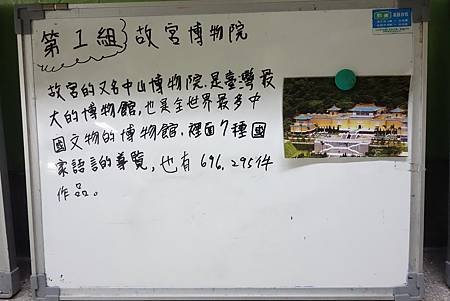 第1組 故宮博物院
故宮的又名中山博物院.是臺灣最
大的博物館,也是全世界最多中
國文物的博物館,裡面7種國
家語言的導覽,也有696,295件
作品。